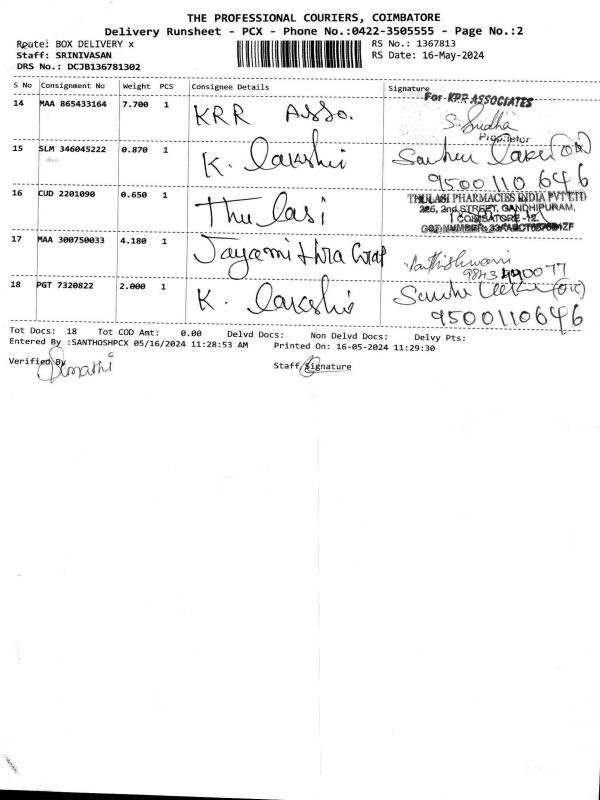 THE PROFESSIONAL COURIERS, COIMBATORE
Delivery Runsheet - PCX - Phone No.:0422-3505555 - Page No.:2
Route: BOX DELIVERY x RS No.: 1367813
Staff: SRINIVASAN RS Date: 16-May-2024
DRS No.: DCJB136781302
S No Consignment No Weight PCS Consignee Details Signature
14 MAA 865433164 7.700 1 KRR Asso. For KRR ASSOCIATES
S. Sudha
Proprietor
15 SLM 346045222 0.870 1 K. Lakshmi
9500110646
16 CUD 2201090 0.650 1 Thulasi THULASI PHARMACIES INDIA PVT LTD
226, 2nd STREET, GANDHIPURAM,
COIMBATORE -12.
17 MAA 300750033 4.180 1 Jayamithra
18 PGT 7320822 2.000 1 K.
9500110646
Tot Docs: 18 Tot COD Amt: 0.00 Delvd Docs: Non Delvd Docs: Delvy Pts:
Entered By :SANTHOSHPCX 05/16/2024 11:28:53 AM Printed On: 16-05-2024 11:29:30
Verified By Staff Signature